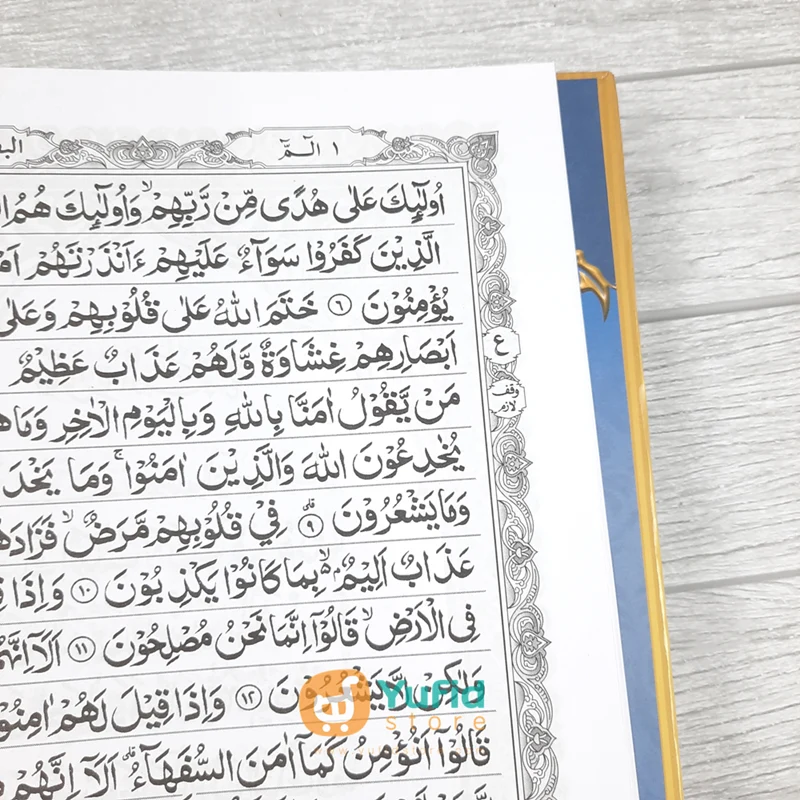 ١ الٓمّٓ
اُولٰۤىِٕكَ عَلٰى هُدًى مِّنْ رَّبِّهِمْ ۙ وَاُولٰۤىِٕكَ هُمُ
الَّذِيْنَ كَفَرُوْا سَوَاۤءٌ عَلَيْهِمْ ءَاَنْذَرْتَهُمْ
يُؤْمِنُوْنَ ٦ خَتَمَ اللّٰهُ عَلٰى قُلُوْبِهِمْ وَعَلٰى
ع
اَبْصَارِهِمْ غِشَاوَةٌ وَّلَهُمْ عَذَابٌ عَظِيْمٌ
وقف
لازم
مَنْ يَّقُوْلُ اٰمَنَّا بِاللّٰهِ وَبِالْيَوْمِ الْاٰخِرِ وَمَا
يُخٰدِعُوْنَ اللّٰهَ وَالَّذِيْنَ اٰمَنُوْا ۚ وَمَا
وَمَا يَشْعُرُوْنَ ۗ ٩ فِيْ قُلُوْبِهِمْ مَّرَضٌ ۙ
عَذَابٌ اَلِيْمٌ ۢ ەۙ بِمَا كَانُوْا يَكْذِبُوْنَ ١٠ وَاِذَا
فِى الْاَرْضِ ۙ قَالُوْٓا اِنَّمَا نَحْنُ مُصْلِحُوْنَ ١١ اَلَآ
وَلٰكِنْ لَّا يَشْعُرُوْنَ ١٢ وَاِذَا قِيْلَ لَهُمْ اٰمِنُوْا
قَالُوْٓا اَنُؤْمِنُ كَمَآ اٰمَنَ السُّفَهَاۤءُ ۗ اَلَآ اِنَّهُمْ
Yufid
store